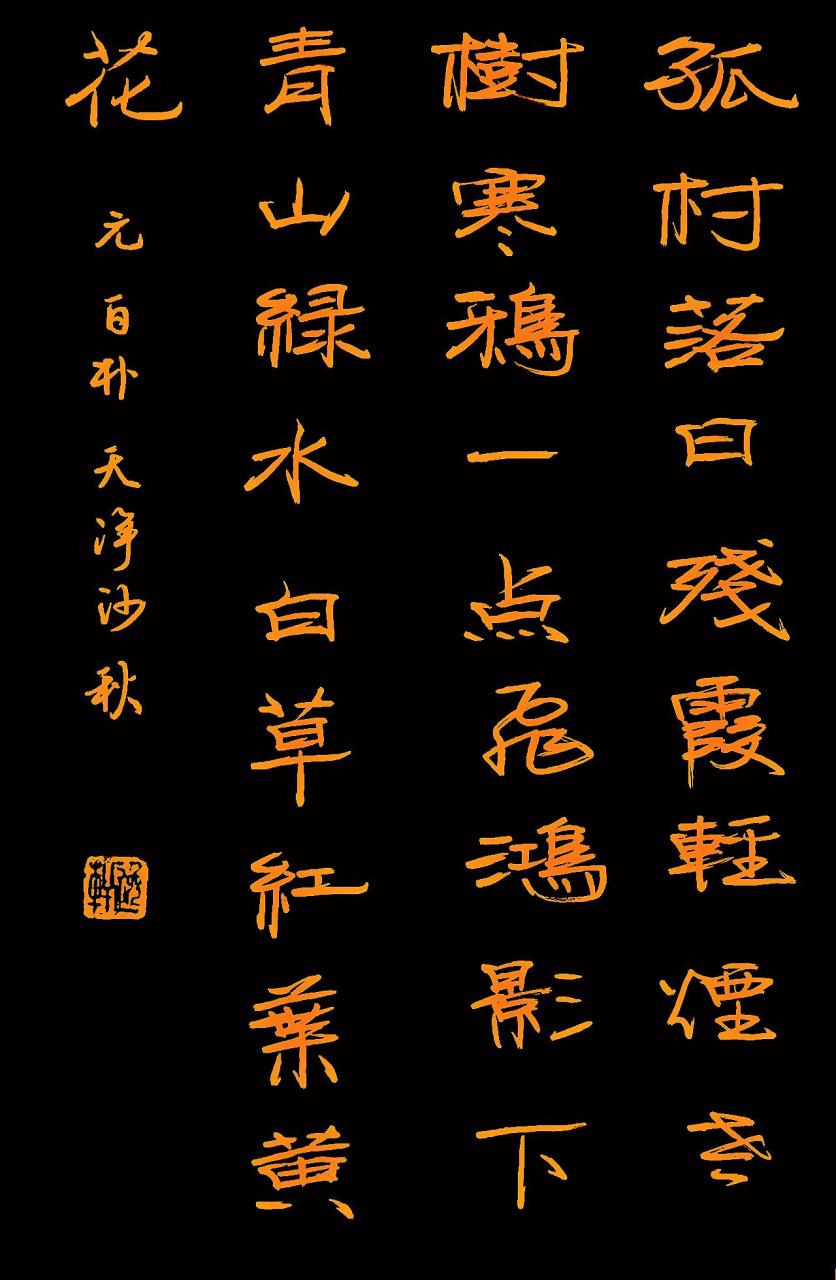 孤村落日殘霞輕煙老
樹寒鴉一点飛鴻影下
青山綠水白草紅葉黃
花 元 白朴 天淨沙 秋